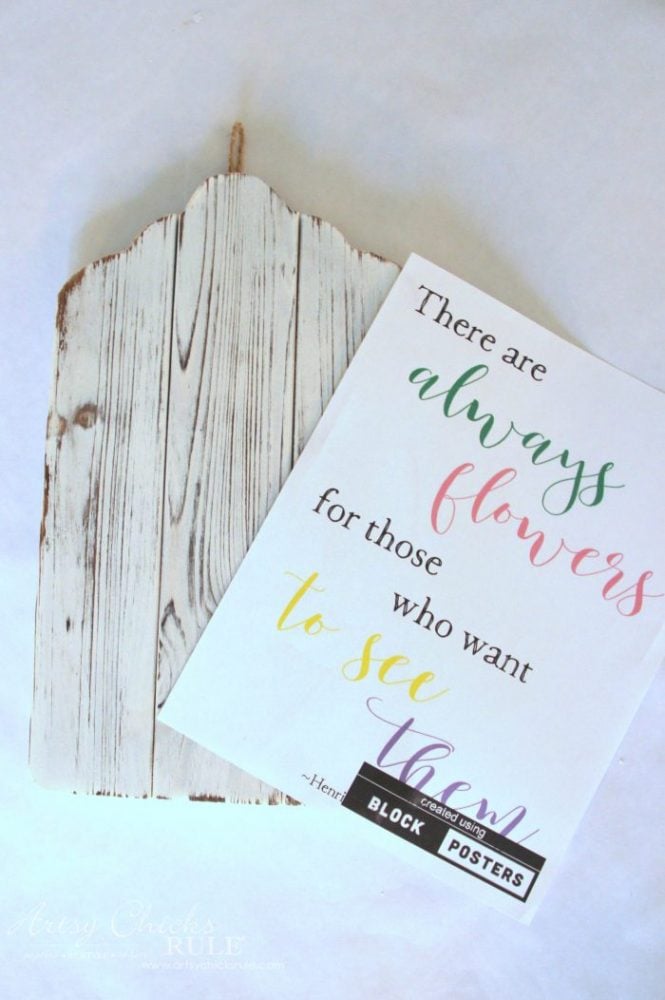 There are
always
flowers
for those
who want
to see
them
~Henri
created using
BLOCK POSTERS
Artsy Chicks
RULE
www.artsychicksrule.com